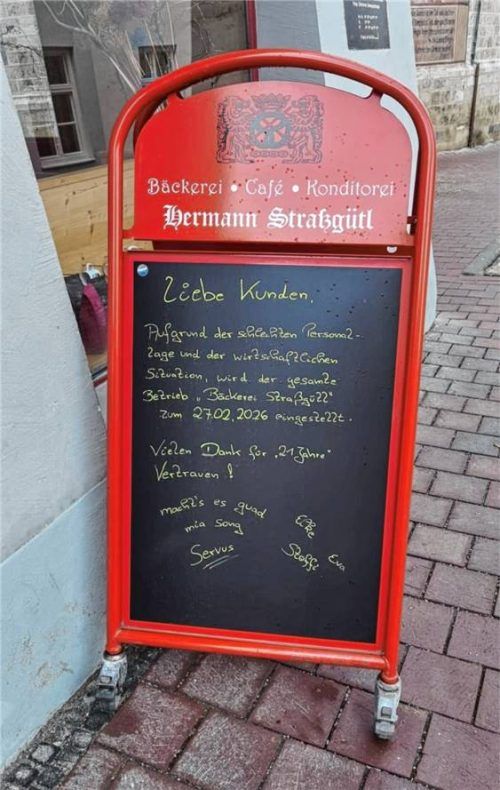 Bäckerei • Café • Konditorei
Hermann Straßgütl
Liebe Kunden,
Aufgrund der schlechten Personal-
lage und der wirtschaftlichen
Situation, wird der gesamte
Betrieb „Bäckerei Straßgütl"
zum 27.02.2026 eingestellt.
Vielen Dank für „21 Jahre"
Vertrauen!
macht's es guad
mia song
Servus
Steffi
Eva